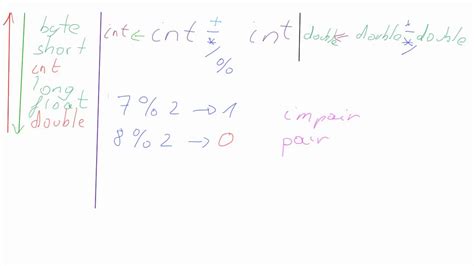 byte
short
int
long
float
double
int ← int ÷ * , % int
double ← double ÷ * , double
7 % 2 → 1 impair
8 % 2 → 0 pair